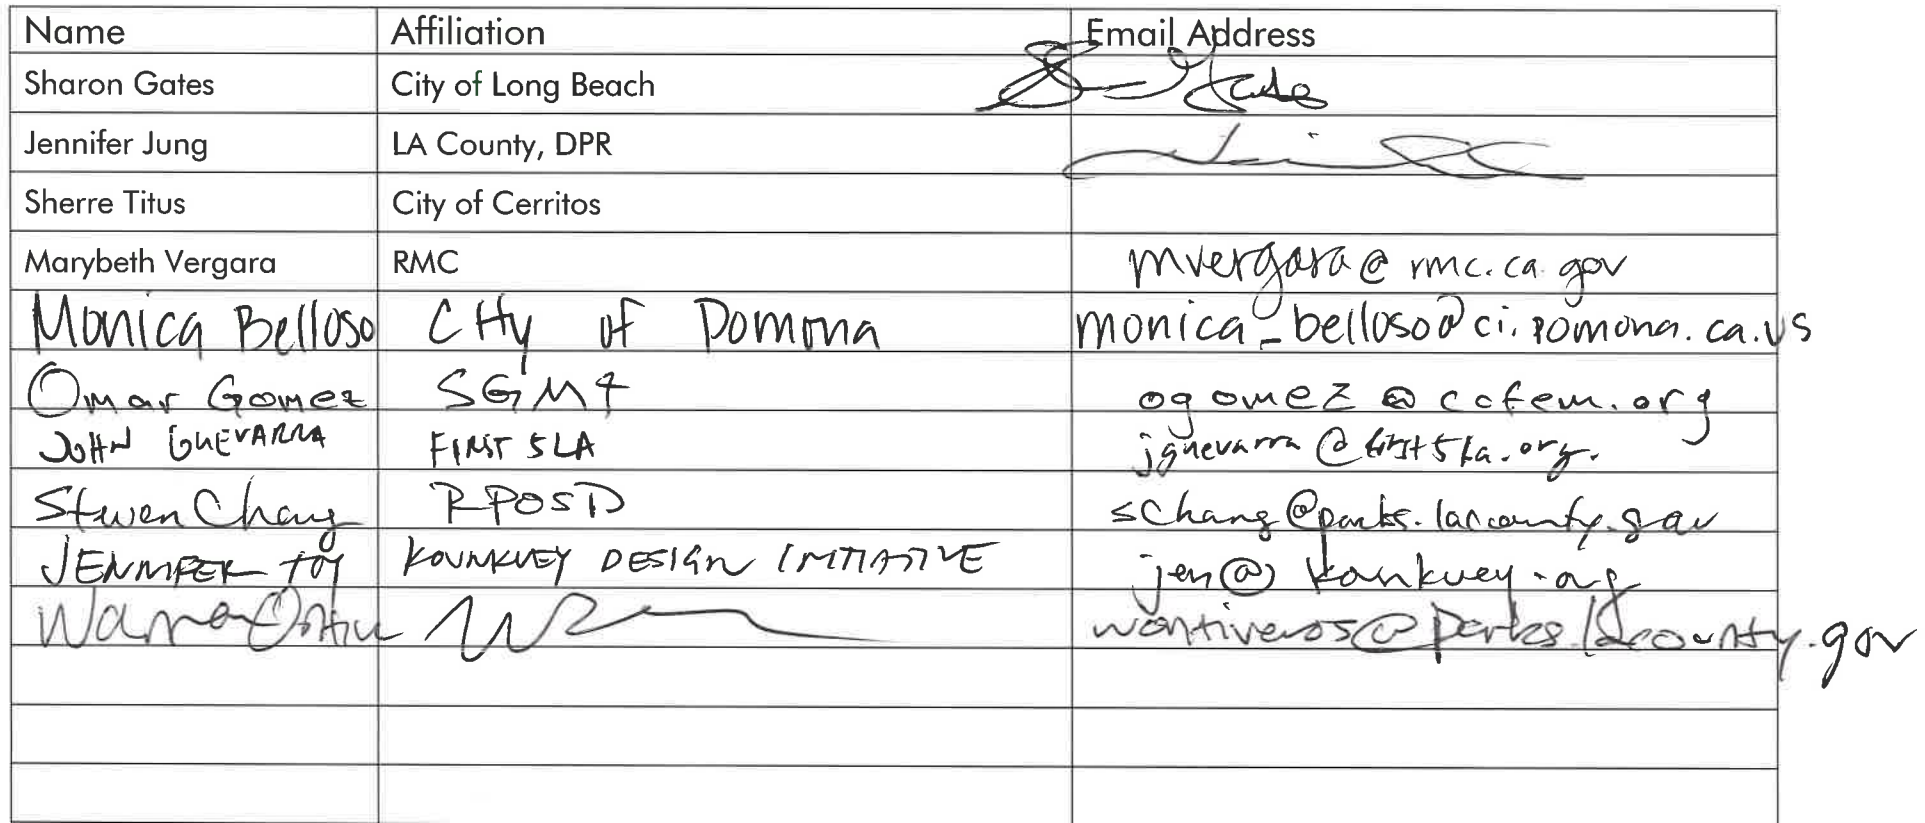 Name Affiliation Email Address
Sharon Gates City of Long Beach
Jennifer Jung LA County, DPR
Sherre Titus City of Cerritos
Marybeth Vergara RMC mvergara@rmc.ca.gov
Monica Belloso City of Pomona monica_belloso@ci.pomona.ca.us
Omar Gomez ogomez@cofem.org
JOHN GUEVARRA FIRST 5 LA jguevarra@first5la.org.
Steven Chang RPOSD schang@parks.lacounty.gov
JENNIFER TOY KOUNKUEY DESIGN INITIATIVE jen@kounkuey.org
wontiveros@parks.lacounty.gov